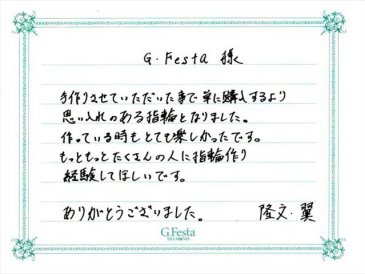 G.Festa 様
手作りさせていただいた事で単に購入するより
思い入れのある指輪となりました。
作っている時もとても楽しかったです。
もっともっとたくさんの人に指輪作り
経験してほしいです。
ありがとうございました。 隆文・翼
G.Festa
DIAMOND